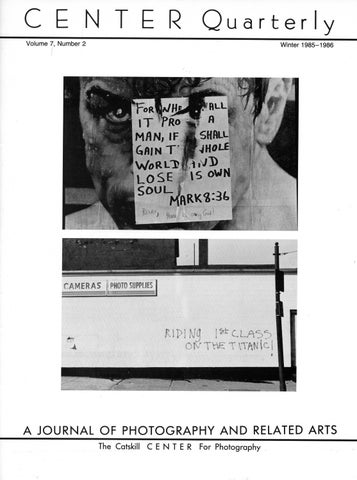 CENTER Quarterly
Volume 7, Number 2
Winter 1985–1986
FOR WHE ALL
IT PRO A
MAN, IF SHALL
GAIN T HOLE
WORLD AND
LOSE IS OWN
SOUL
MARK 8:36
CAMERAS PHOTO SUPPLIES
RIDING 1ST CLASS
ON THE TITANIC!
A JOURNAL OF PHOTOGRAPHY AND RELATED ARTS
The Catskill CENTER For Photography